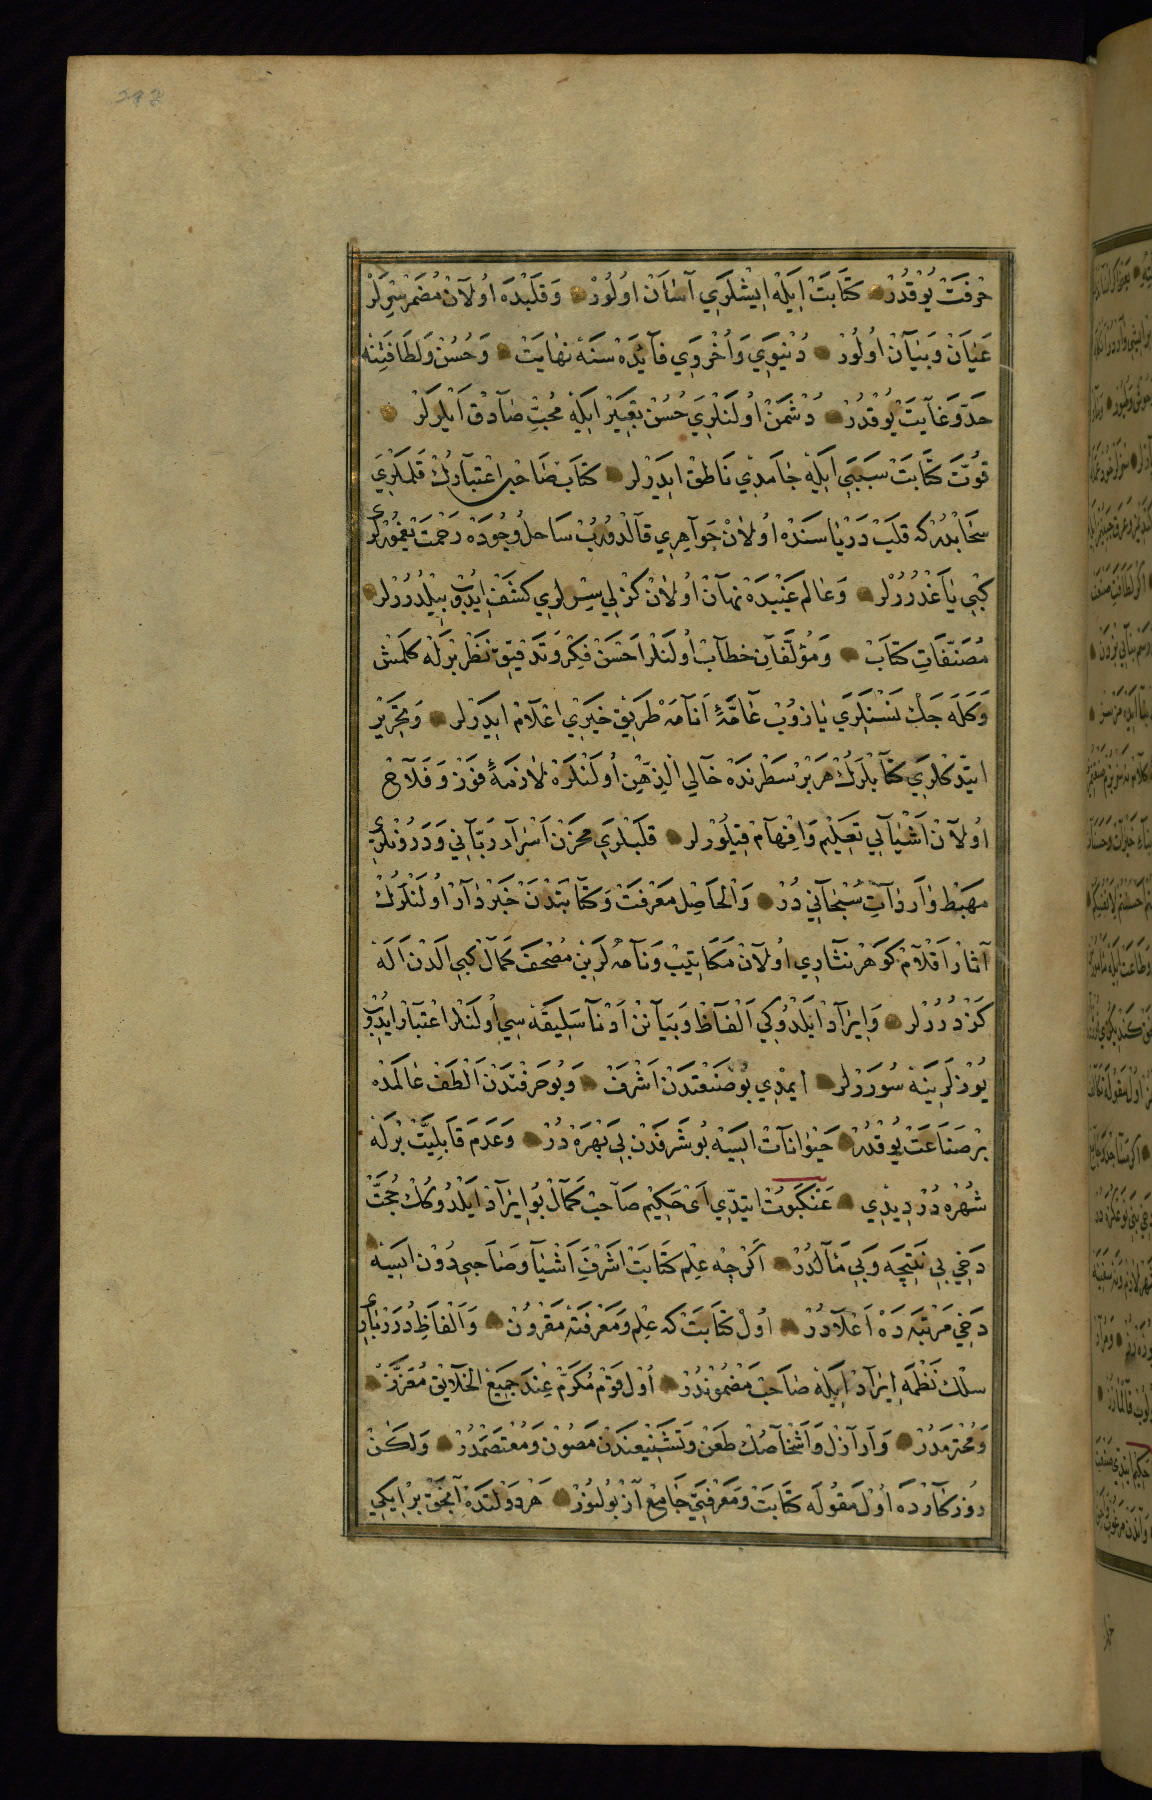 حرفت يوقدر كتابت ايله ايشلري آسان اولور و قلبده اولان مضمر سرلر
عيان و بيان اولور دنيوي و اخروي فآيده سنه نهايت و حسن و لطافتنه
حد و غآيت يوقدر دشمن اولنلري حسن تعبير ايله محب صادق ايلرلر
قوت كتابت سببي ايله جامدي ناطق ايدرلر كتاب صاحب اعتبارك قلملري
سحابدر كه قلب درياسنده اولان جواهري قالدورب ساحل وجوده رحمت يغمورلري
كبي ياغدررلر و عالم غيبده نهان اولان كزلي سرلري كشف ايدوب بيلدررلر
مصنفات كتاب و مؤلفان خطاب اولنلر احسن فكر و تدقيق نظر برله كلمش
و كله جك نسنلري يازوب عامهٔ انامه طريق خيري اعلام ايدرلر و تحرير
ايتدكلري كتابلرك هر بر سطرنده خالي الذهن اولنلره لازمهٔ فوز و فلاح
اولان اشيآيي تعليم و افهام قيلورلر قلبلري مخزن اسرار رباني و درونلري
مهبط واردات سبحاني در و الحاصل معرفت و كتابتدن خبردار اولنلرك
آثار اقلام كوهر نثاري اولان مكاتيب و نامه لرين مصحف كمال كبي الدن اله
كزدررلر و ايراد ايلدوكي الفاظ و بيانن ادنا سليقه سي اولنلر اعتبار ايدوب
يوزلرينه سوررلر ايمدي بو صنعتدن اشرف و بو حرفتدن الطف عالمده
بر صناعت يوقدر حيوانات ايسه بو شرفدن بي بهره در و عدم قابليت برله
شهره در ديدي عنكبوت ايتدي اى حكيم صاحب كمال بو ايراد ايلدوكك حجت
دخي بي نتيجه و بي مآلدر اكرچه علم كتابت اشرف اشيا و صاحبي دون ايسه
دخي مرتبه ده اعلادر اول كتابت كه علم و معرفته مقرون و الفاظ درر نثاري
سلك نظمه ايراد ايله صاحب مضموندر اول قوم مكرم عند جميع الخلايق معزز
و محترمدر و اراذل و اشخاصك طعن و تشنيعندن مصون و معتصمدر و لكن
روزكارده اول مقوله كتابت و معرفتي جامع از بولنور هر دولتده آنجق بر ايكي